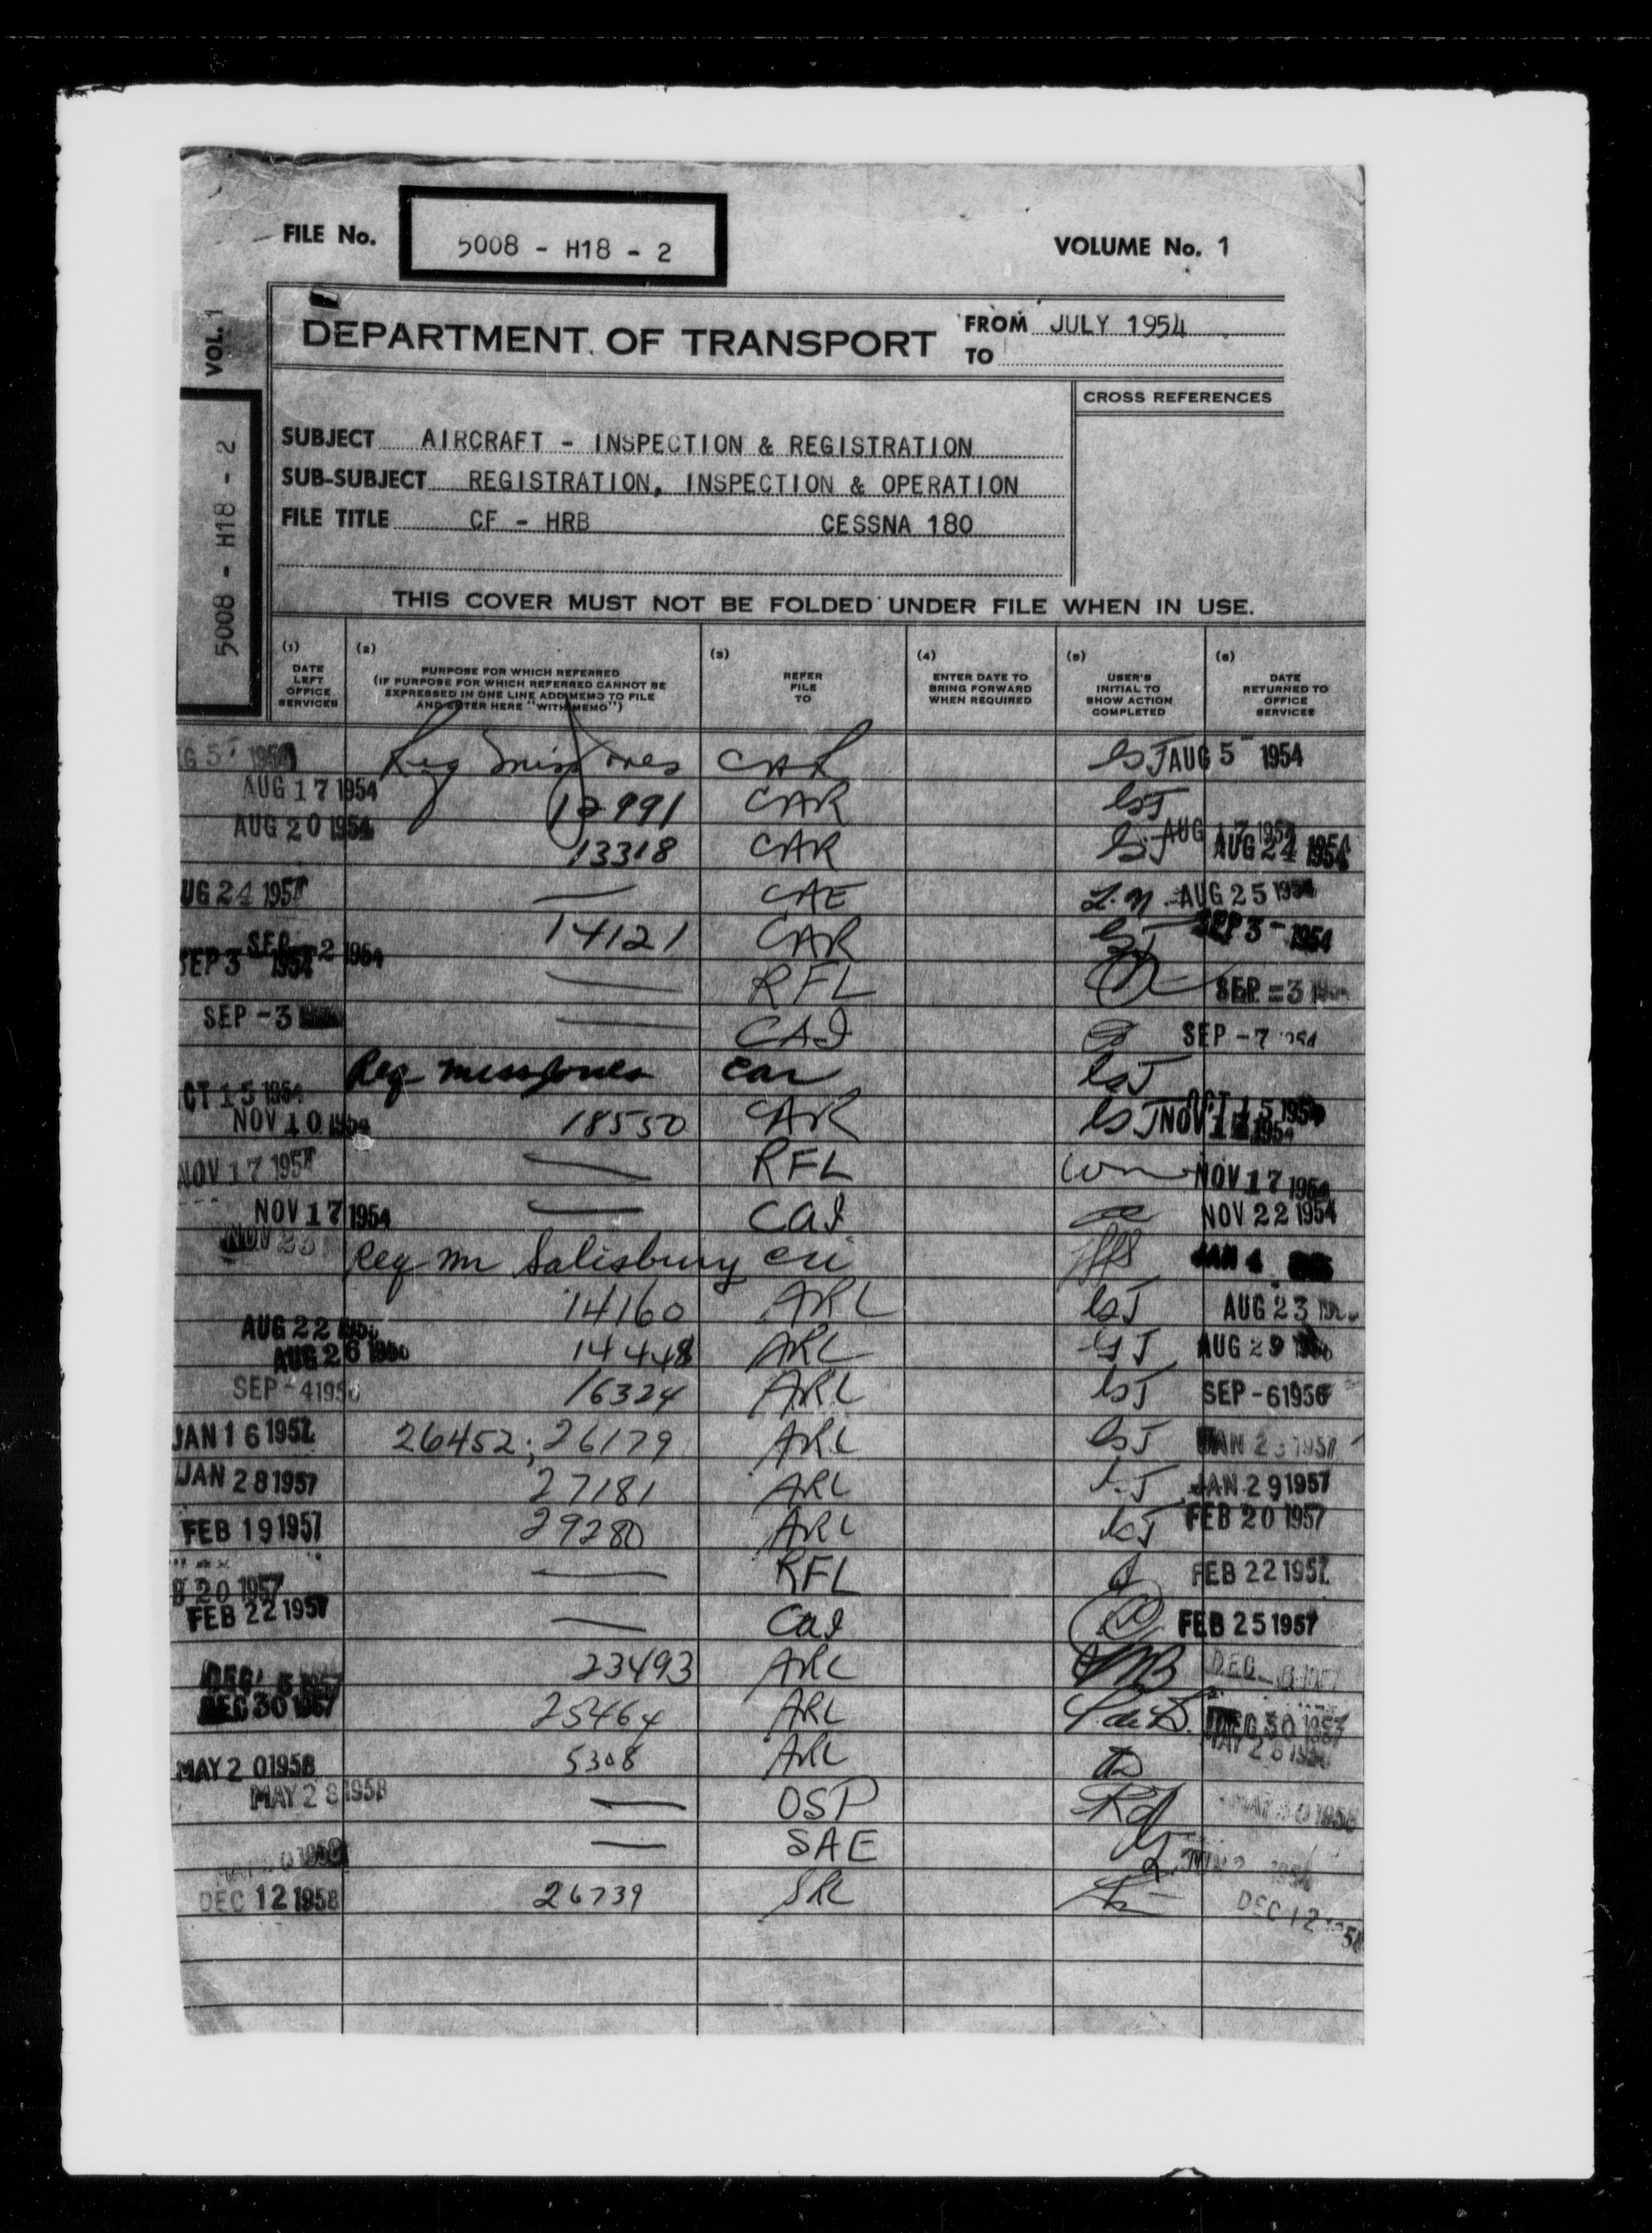 FILE No. 5008 - H18 - 2 VOLUME No. 1
VOL. 1
5008 - H18 - 2
DEPARTMENT OF TRANSPORT FROM JULY 1954
TO
CROSS REFERENCES
SUBJECT AIRCRAFT - INSPECTION & REGISTRATION
SUB-SUBJECT REGISTRATION, INSPECTION & OPERATION
FILE TITLE CF - HRB CESSNA 180
THIS COVER MUST NOT BE FOLDED UNDER FILE WHEN IN USE.
(1) DATE LEFT OFFICE SERVICES
(2) PURPOSE FOR WHICH REFERRED
(IF PURPOSE FOR WHICH REFERRED CANNOT BE
EXPRESSED IN ONE LINE ADD MEMO TO FILE
AND ENTER HERE "WITH MEMO")
(3) REFER FILE TO
(4) ENTER DATE TO BRING FORWARD WHEN REQUIRED
(5) USER'S INITIAL TO SHOW ACTION COMPLETED
(6) DATE RETURNED TO OFFICE SERVICES
G 5 1954 Req Miss Jones CAR AUG 5 1954
AUG 17 1954 12991 CAR AUG 17 1954
AUG 20 1954 13318 CAR AUG 24 1954
UG 24 1954 — CAE L.M. AUG 25 1954
SEP 2 1954 14121 CAR SEP 3 - 1954
SEP 3 1954 — RFL SEP - 3
SEP - 3 — CAI SEP - 7 1954
CT 15 1954 Req Miss Jones Car OCT 15 1954
NOV 10 1954 18550 CAR NOV 1954
NOV 17 1954 — RFL NOV 17 1954
NOV 17 1954 — CAI NOV 22 1954
NOV 23 Req Mr Salisbury JAN 4
AUG 22 14160 ARL AUG 23
AUG 26 14448 ARL AUG 29
SEP - 4 1956 16324 ARL SEP - 6 1956
JAN 16 1957 26452; 26179 ARL JAN 23 1957
JAN 28 1957 27181 ARL JAN 29 1957
FEB 19 1957 29280 ARL FEB 20 1957
B 20 1957 — RFL FEB 22 1957
FEB 22 1957 — CAI FEB 25 1957
DEC 5 1957 23493 ARL DEC
DEC 30 1957 25464 ARL DEC 30 1957
MAY 20 1958 5308 ARL MAY 28
MAY 28 1958 — OSP MAY 30 1958
1958 — SAE
DEC 12 1958 26739 SRL DEC 12 58